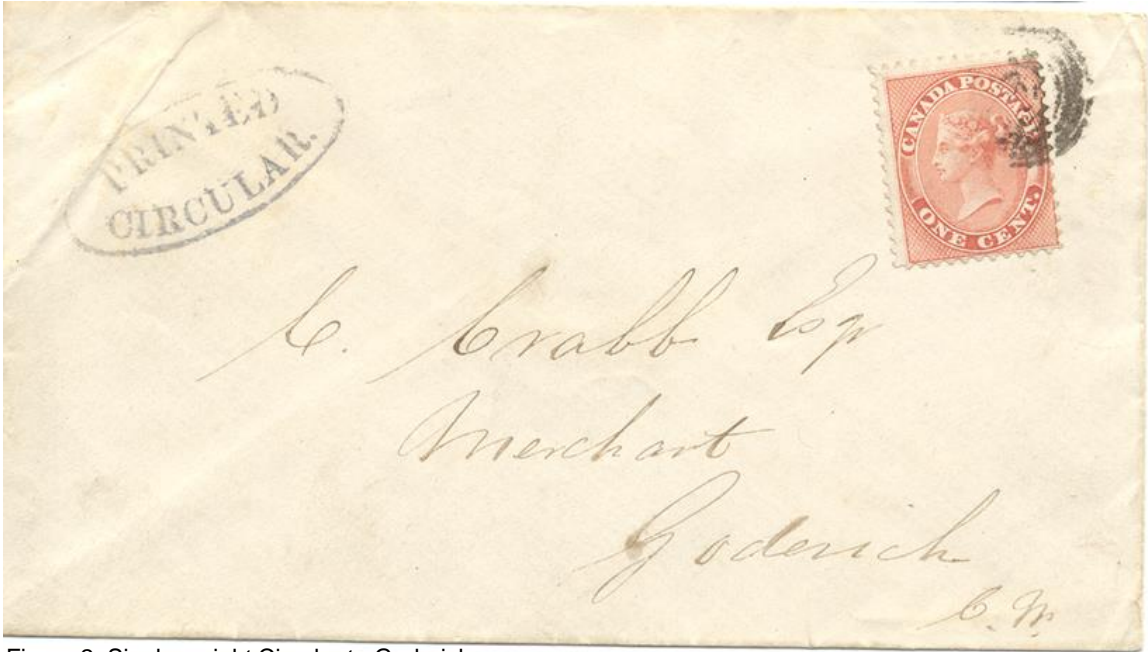 PRINTED
CIRCULAR.
CANADA POSTAGE
ONE CENT.
C. Crabb Esqr
Merchant
Goderich
C. W.